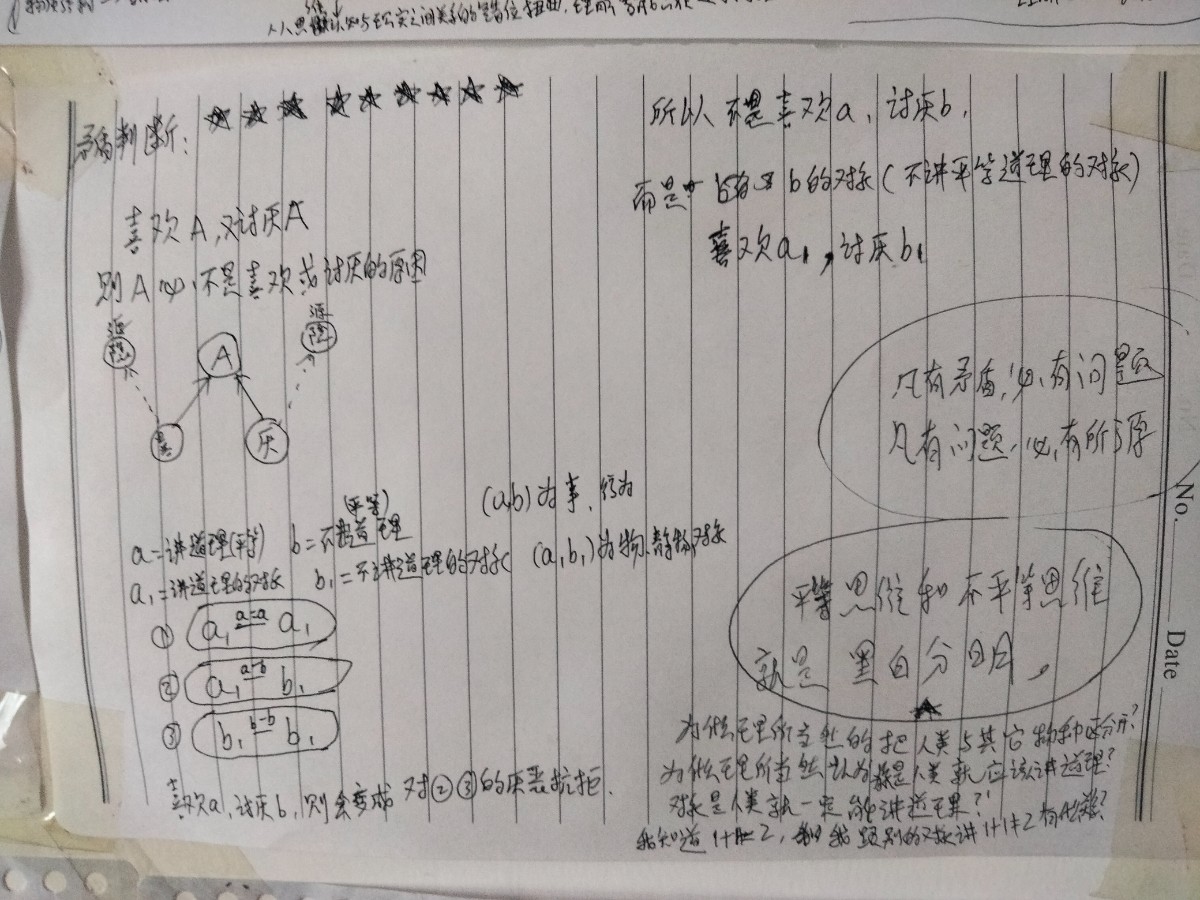 人人思维认知与现实之间关系的错位扭曲，理解
矛盾判断：
喜欢A，又讨厌A
则A必不是喜欢或讨厌的原因
源
隐
源
隐
A
喜
厌
(a,b)为事、行为
a=讲道理(平等) b=不讲道理(平等)
a₁=讲道理的对象 b₁=不讲道理的对象 (a₁b₁)为物、静物、对象
① a₁ a=a a₁
② a₁ a-b b₁
③ b₁ b-b b₁
喜欢a，讨厌b，则会变成对②③的厌恶抗拒.
所以不是喜欢a，讨厌b，
而是 b的对象(不讲平等道理的对象)
喜欢a₁，讨厌b₁
凡有矛盾，必有问题
凡有问题，必有所源
平等思维和不平等思维
就是黑白分明，
为什么理所当然的把人类与其它物种区分开?
为什么理所当然认为是人类就应该讲道理?
对象是人类就一定能讲道理?
我知道1+1=2，我跟别的对象讲1+1=2有什么?
No.
Date